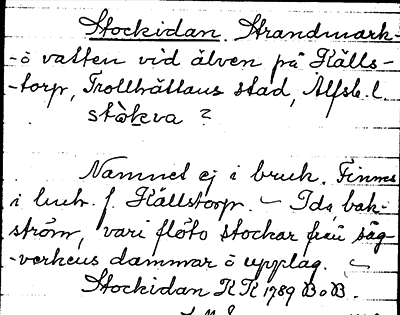 Stockidan. Strandmark-
-o vatten vid älven på Källs-
-torp, Trollhättans stad, Älfsb. l.
stɔ̀kɐva ?
Namnet ej i bruk. Finnes
i lueh. f. Källstorp. – Ida, bak-
ström, vari flöto stockar från såg-
-verkens dammar o upplag.
Stockidan K K 1789 B o B.